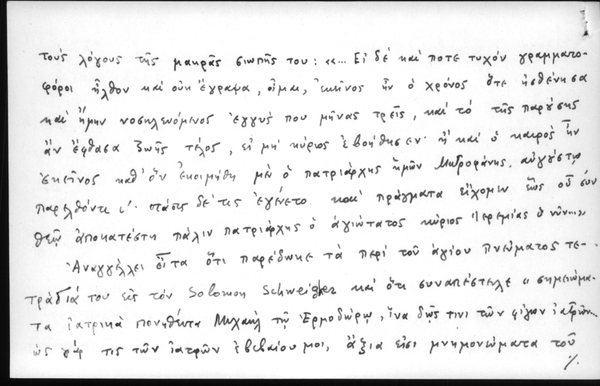 τοὺς λόγους τῆς μακρᾶς σιωπῆς του: «... Εἰ δὲ καὶ ποτε τυχὸν γραμματο-
φόροι ἦλθον καὶ οὐκ ἔγραψα, οἶμαι, ἐκεῖνος ἦν ὁ χρόνος ὅτε ἠσθένησα
καὶ ἤμην νοσηλευόμενος ἐγγύς που μῆνας τρεῖς, καὶ τὸ τῆς παρούσης
ἂν ἔφθασα ζωῆς τέλος, εἰ μὴ κύριος ἐβοήθησεν· ἢ καὶ ὁ καιρὸς ἦν
ἐκεῖνος καθ' ὃν ἐκοιμήθη μὲν ὁ πατριάρχης ἡμῶν Μητροφάνης, αὐγούστῳ
παρελθόντι ι΄· στάσις δέ τις ἐγένετο καὶ πράγματα εἴχομεν ἕως οὗ σὺν
θεῷ ἀποκατέστη πάλιν πατριάρχης ὁ ἁγιώτατος κύριος Ἱερεμίας ὁ νῦν...»
Ἀναγγέλλει εἶτα ὅτι παρέδωκε τὰ περὶ τοῦ ἁγίου Πνεύματος τε-
τράδιά του εἰς τὸν Solomon Schweigker καὶ ὅτι συναπέστειλε «σημειώμα-
τα ἰατρικὰ πονηθέντα Μιχαὴλ τῷ Ἑρμοδώρῳ, ἵνα δῷς τινι τῶν φίλων ἰατρῶν...
ὡς γάρ τις τῶν ἰατρῶν ἐβεβαίου μοι, ἄξια εἰσι μνημονεύματα τοῦ
./.